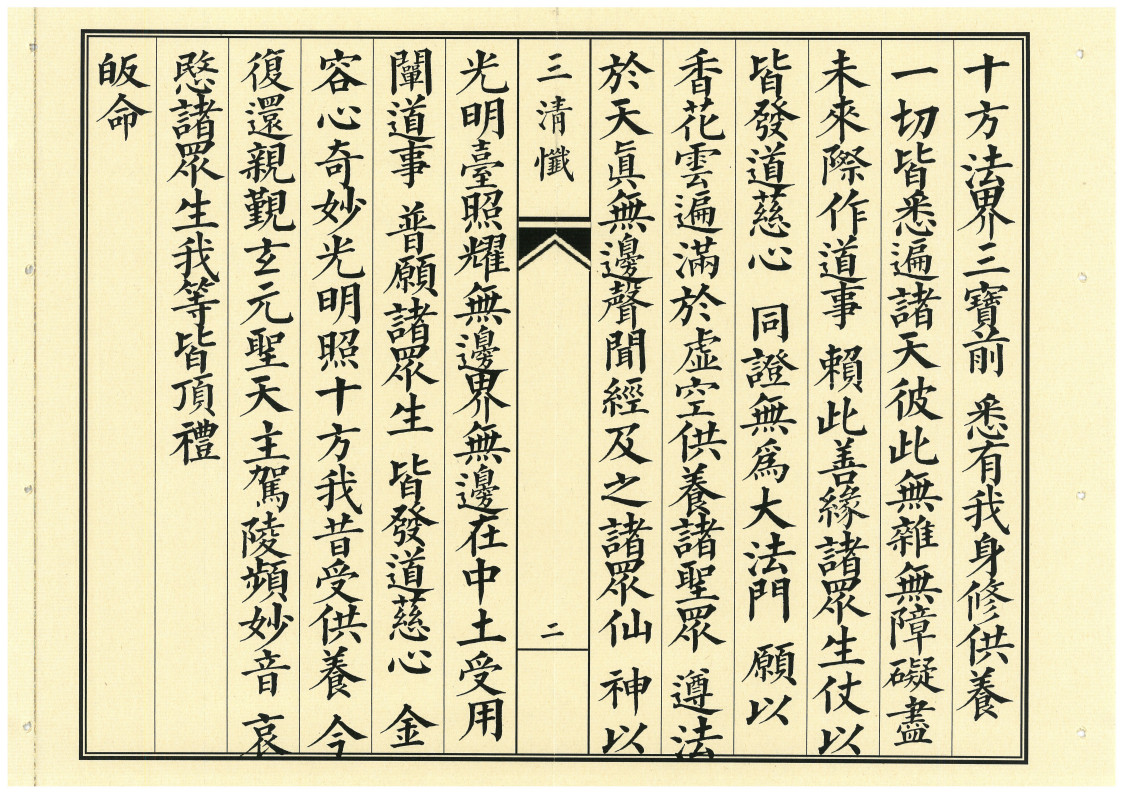 十方法界三寶前 悉有我身修供養
一切皆悉遍諸天彼此無雜無障礙盡
未來際作道事 賴此善緣諸眾生仗以
皆發道慈心 同證無爲大法門 願以
香花雲遍滿於虛空供養諸聖眾 遵法
於天眞無邊聲聞經及之諸眾仙 神以
三清懺 二
光明臺照耀無邊界無邊在中土受用
闡道事 普願諸眾生 皆發道慈心 金
容心奇妙光明照十方我昔受供養 今
復還親覲玄元聖天主駕陵頻妙音 哀
愍諸眾生我等皆頂禮
皈命